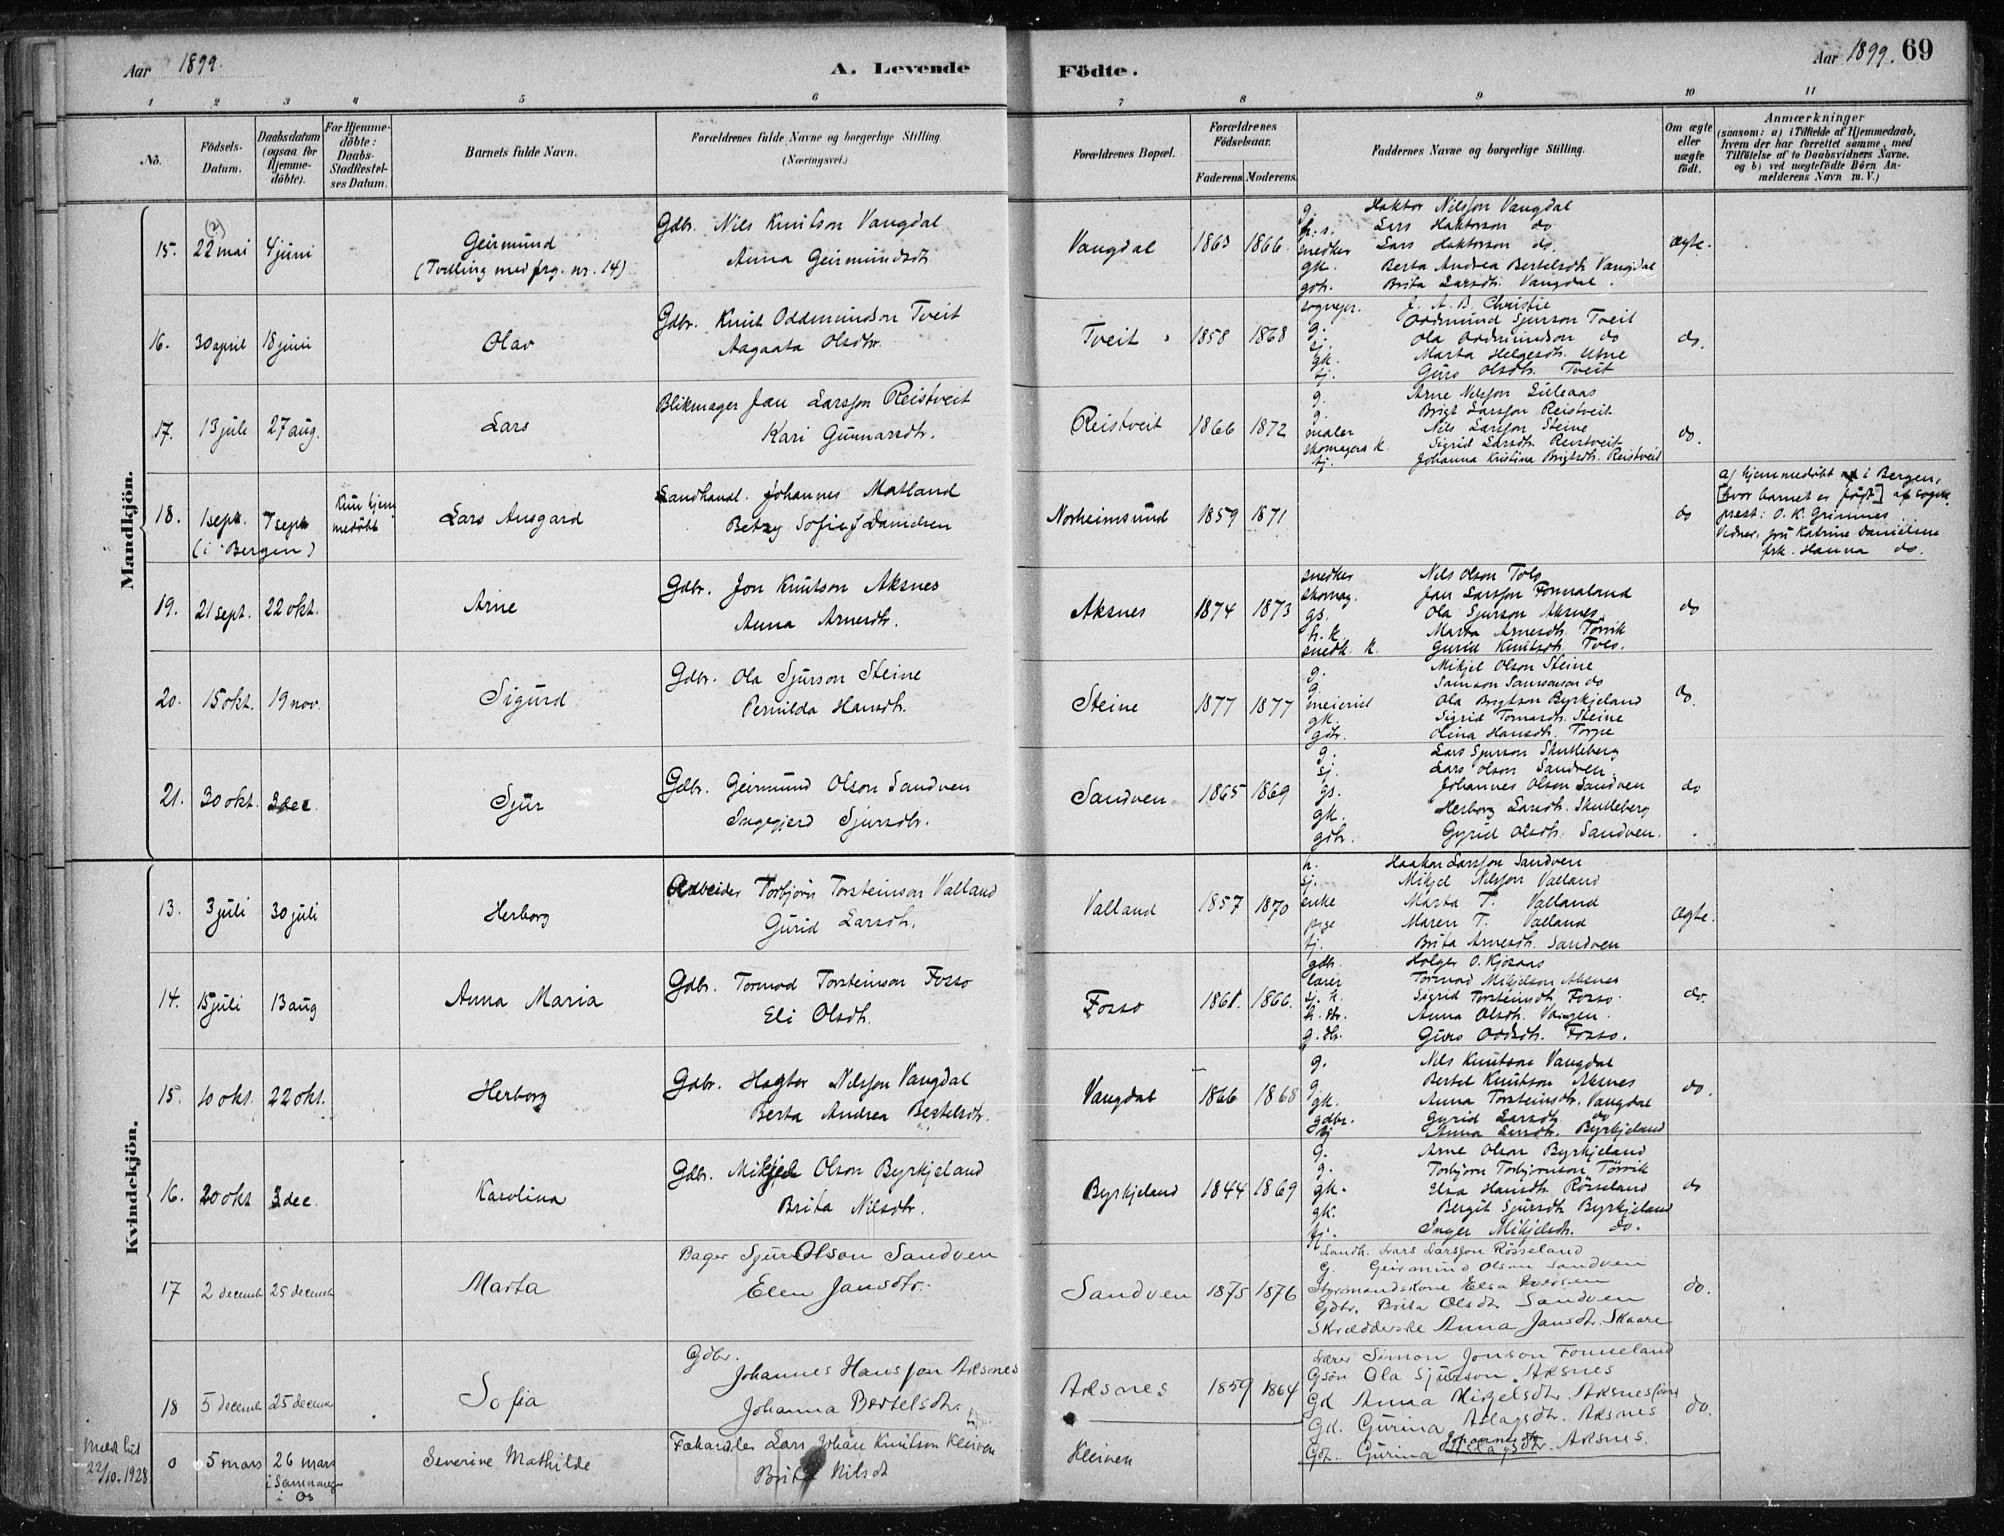 Aar 1899.
A. Levende
Födte.
Aar 1899. 69
1 2 3 4 5 6 7 8 9 10 11
No.
Födsels-Datum.
Daabsdatum (ogsaa for Hjemme-döbte).
For Hjemme-döbte: Daabs-Stadfestel-ses Datum.
Barnets fulde Navn.
Forældrenes fulde Navne og borgerlige Stilling.
(Næringsvei.)
Forældrenes Bopæl.
Forældrenes Födselsaar.
Faderens. Moderens.
Faddernes Navne og borgerlige Stilling.
Om ægte eller uægte födt.
Anmærkninger
(saasom: a) i Tilfælde af Hjemmedaab, hvem der har forrettet samme, med Tilföielse af to Daabsvidners Navne, og b) ved uægtefödte Börn An-melderens Navn m. V.)
Mandkjön.
15. 22 mai (2) 4 juni Geirmund (Tvilling med frg. nr. 14) Gdbr. Nils Knutson Vangdal
Anna Geirmundsdtr. Vangdal 1863 1866 ægte.
g. Haktor Nilsson Vangdal
Lars Haktorson do
snedker Lars Haktorson do.
gk. Berta Andrea Bertelsdtr. Vangdal
gdtr. Brita Larsdtr. Vangdal.
16. 30 april 18 juni Olav Gdbr. Knut Oddmundson Tveit
Aagaata Olsdtr. Tveit 1858 1868 do.
sogнepr. J. A. B. Christie
g. Oddmund Sjurson Tveit
sj. Ola Oddmundson do
gk. Marta Helgesdtr. Utne
tj. Guro Olsdtr. Tveit
17. 13 juli 27 aug. Lars Blikmager Jan Larsson Reistveit
Kari Gunnarsdtr. Reistveit 1866 1872 do.
g. Arne Nilsson
g. Brigt Larsson Reistveit
maler Nils Larsson Steine
skomagers k. Sigrid Larsdtr. Reistveit
tj. Johanna Kristina Brigtsdtr. Reistveit
18. 1 sept. (i Bergen) 7 sept Kun hjem medöbt Lars Ansgard Landhandl. Johannes Matland
Betzy Sofie J Danielsen Norheimsund 1859 1871 do
a/ hjemmedöbt i Bergen,
[hvor barnet er födt] af sogne
prest: O. K. Grimnes
Vidner, fru Katrine Danielsen
frk. Hanna do.
19. 21 sept. 22 okt. Arne Gdbr. Jon Knutson Aksnes
Anna Arnesdtr. Aksnes 1874 1873 do
snedker Nils Olson Tolo
skomag. Jan Larsson Fonnaland
gs. Ola Sjurson Aksnes
h. k. Marta Arnesdtr. Törvik
snedk. k. Gurid Knutsdtr. Tolo.
20. 15 okt. 19 nov. Sigurd Gdbr. Ola Sjurson Steine
Pernilda Hansdtr. Steine 1877 1877 do.
g. Mikjel Olson Steine
g Samson Samsonson do
meierist Ola Brigtson Byrkjeland
gk. Sigrid Tomasdtr. Steine
gdtr. Olina Hansdtr. Torpe
21. 30 okt. 3 dec Sjur Gdbr. Geirmund Olson Sandven
Ingegjerd Sjursdtr. Sandven 1865 1869 do
g. Lars Sjurson Skutleberg
sj. Lars Olson Sandven.
gs. Johannes Olson Sandven
gk. Herborg Larsdtr. Skutleberg
gdtr. Gyrid Olsdtr. Sandven.
Kvindekjön.
13. 3 juli 30 juli Herborg Arbeider Torbjørn Torsteinson Valland
Gurid Larsdtr. Valland 1857 1870 ægte.
h. Haakon Larsson Sandven
sj. Mikjel Nilsson Valland
enke Marta T. Valland
pige Maren T. Valland
tj. Brita Arnesdtr. Sandven
14. 15 juli 13 aug Anna Maria Gdbr. Tormod Torsteinson Fosso
Eli Olsdtr. Fosso 1861. 1866. do.
gdbr. Holger O. Kjosaas
lærer Tormod Mikjelson Aksnes
sj. k. Sigrid Torsteinsdtr. Fosso
h. dtr. Anna Olsdtr. Vangen.
g. dtr. Guro Oddsdtr. Fosso.
15. 10 okt. 22 okt. Herborg Gdbr. Hagtor Nilsson Vangdal
Berta Andrea Bertelsdtr. Vangdal 1866 1868 do.
g. Nils Knutson Vangdal
g Bertel Knutson Aksnes
gk. Anna Torsteinsdtr. Vangdal
gdbr. Gyrid Larsdtr. do
tj Anna Larsdtr. Byrkjeland
16. 20 okt 3 dec. Karolina Gdbr. Mikjel Olson Byrkjeland
Brita Nilsdtr. Byrkjeland 1844 1869 do
g. Arne Olson Byrkjeland
g. Torbjørn Torbjørnson Törvik
gk. Elsa Hansdtr. Rösseland
gk. Bergit Sjursdtr Byrkjeland
tj. Inger Mikjelsdtr. do.
17 2 decemb 25 decemb Marta Bager Sjur Olson Sandven
Elen Jansdtr. Sandven 1875 1876 do.
Landh. Lars Larsson Rösseland
G. Geirmund Olson Sandven
Styrmandskone Elsa Iversen
Gdtr. Brita Olsdtr Sandven
Skrædderske Anna Jansdtr. Skaare
18 5 decemb 25 decemb Sofia Gdbr. Johannes Hansson Aksnes
Johanna Bertelsdtr. Aksnes 1859 1864 do.
Lærer Simon Jonson Fonneland
Gsön Ola Sjurson Aksnes
Gd Anna Mikjelsdtr. Aksnes
Gk. Gurina Aslagsdtr. Aksnes
Gdt. Gurina Johannesdtr Aksnes.
Meldt hid 22/10.1928 0 5 mars 26 mars i Samnanger i Os Severine Mathilde Fæhandler Lars Johan Knutson Kleiven
Brita Nilsdt Kleiven